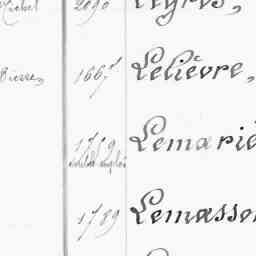 Michel 2090 Legros,
Pierre, 1667 Lelièvre,
1759 Lemarié
1789 Lemasson